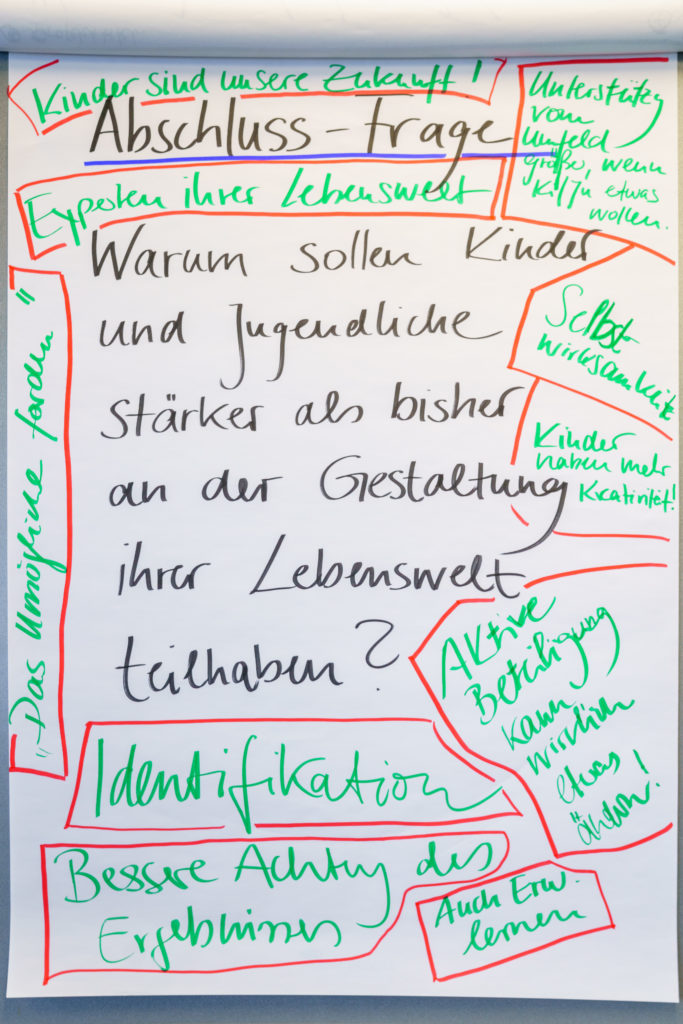 Kinder sind unsere Zukunft!
Abschluss-Frage
Unterstützg
vom
Umfeld
größe, wenn
Ki/Ju etwas
wollen.
Experten ihrer Lebenswelt
Warum sollen Kinder
und Jugendliche
stärker als bisher
an der Gestaltung
ihrer Lebenswelt
teilhaben?
"Das Unmögliche fordern"
Selbst-
wirksamkeit
Kinder
haben mehr
Kreativität!
Aktive
Beteiligung
kann
wirklich
etwas
ändern!
Identifikation
Bessere Achtung des
Ergebnisses
Auch Erw.
lernen